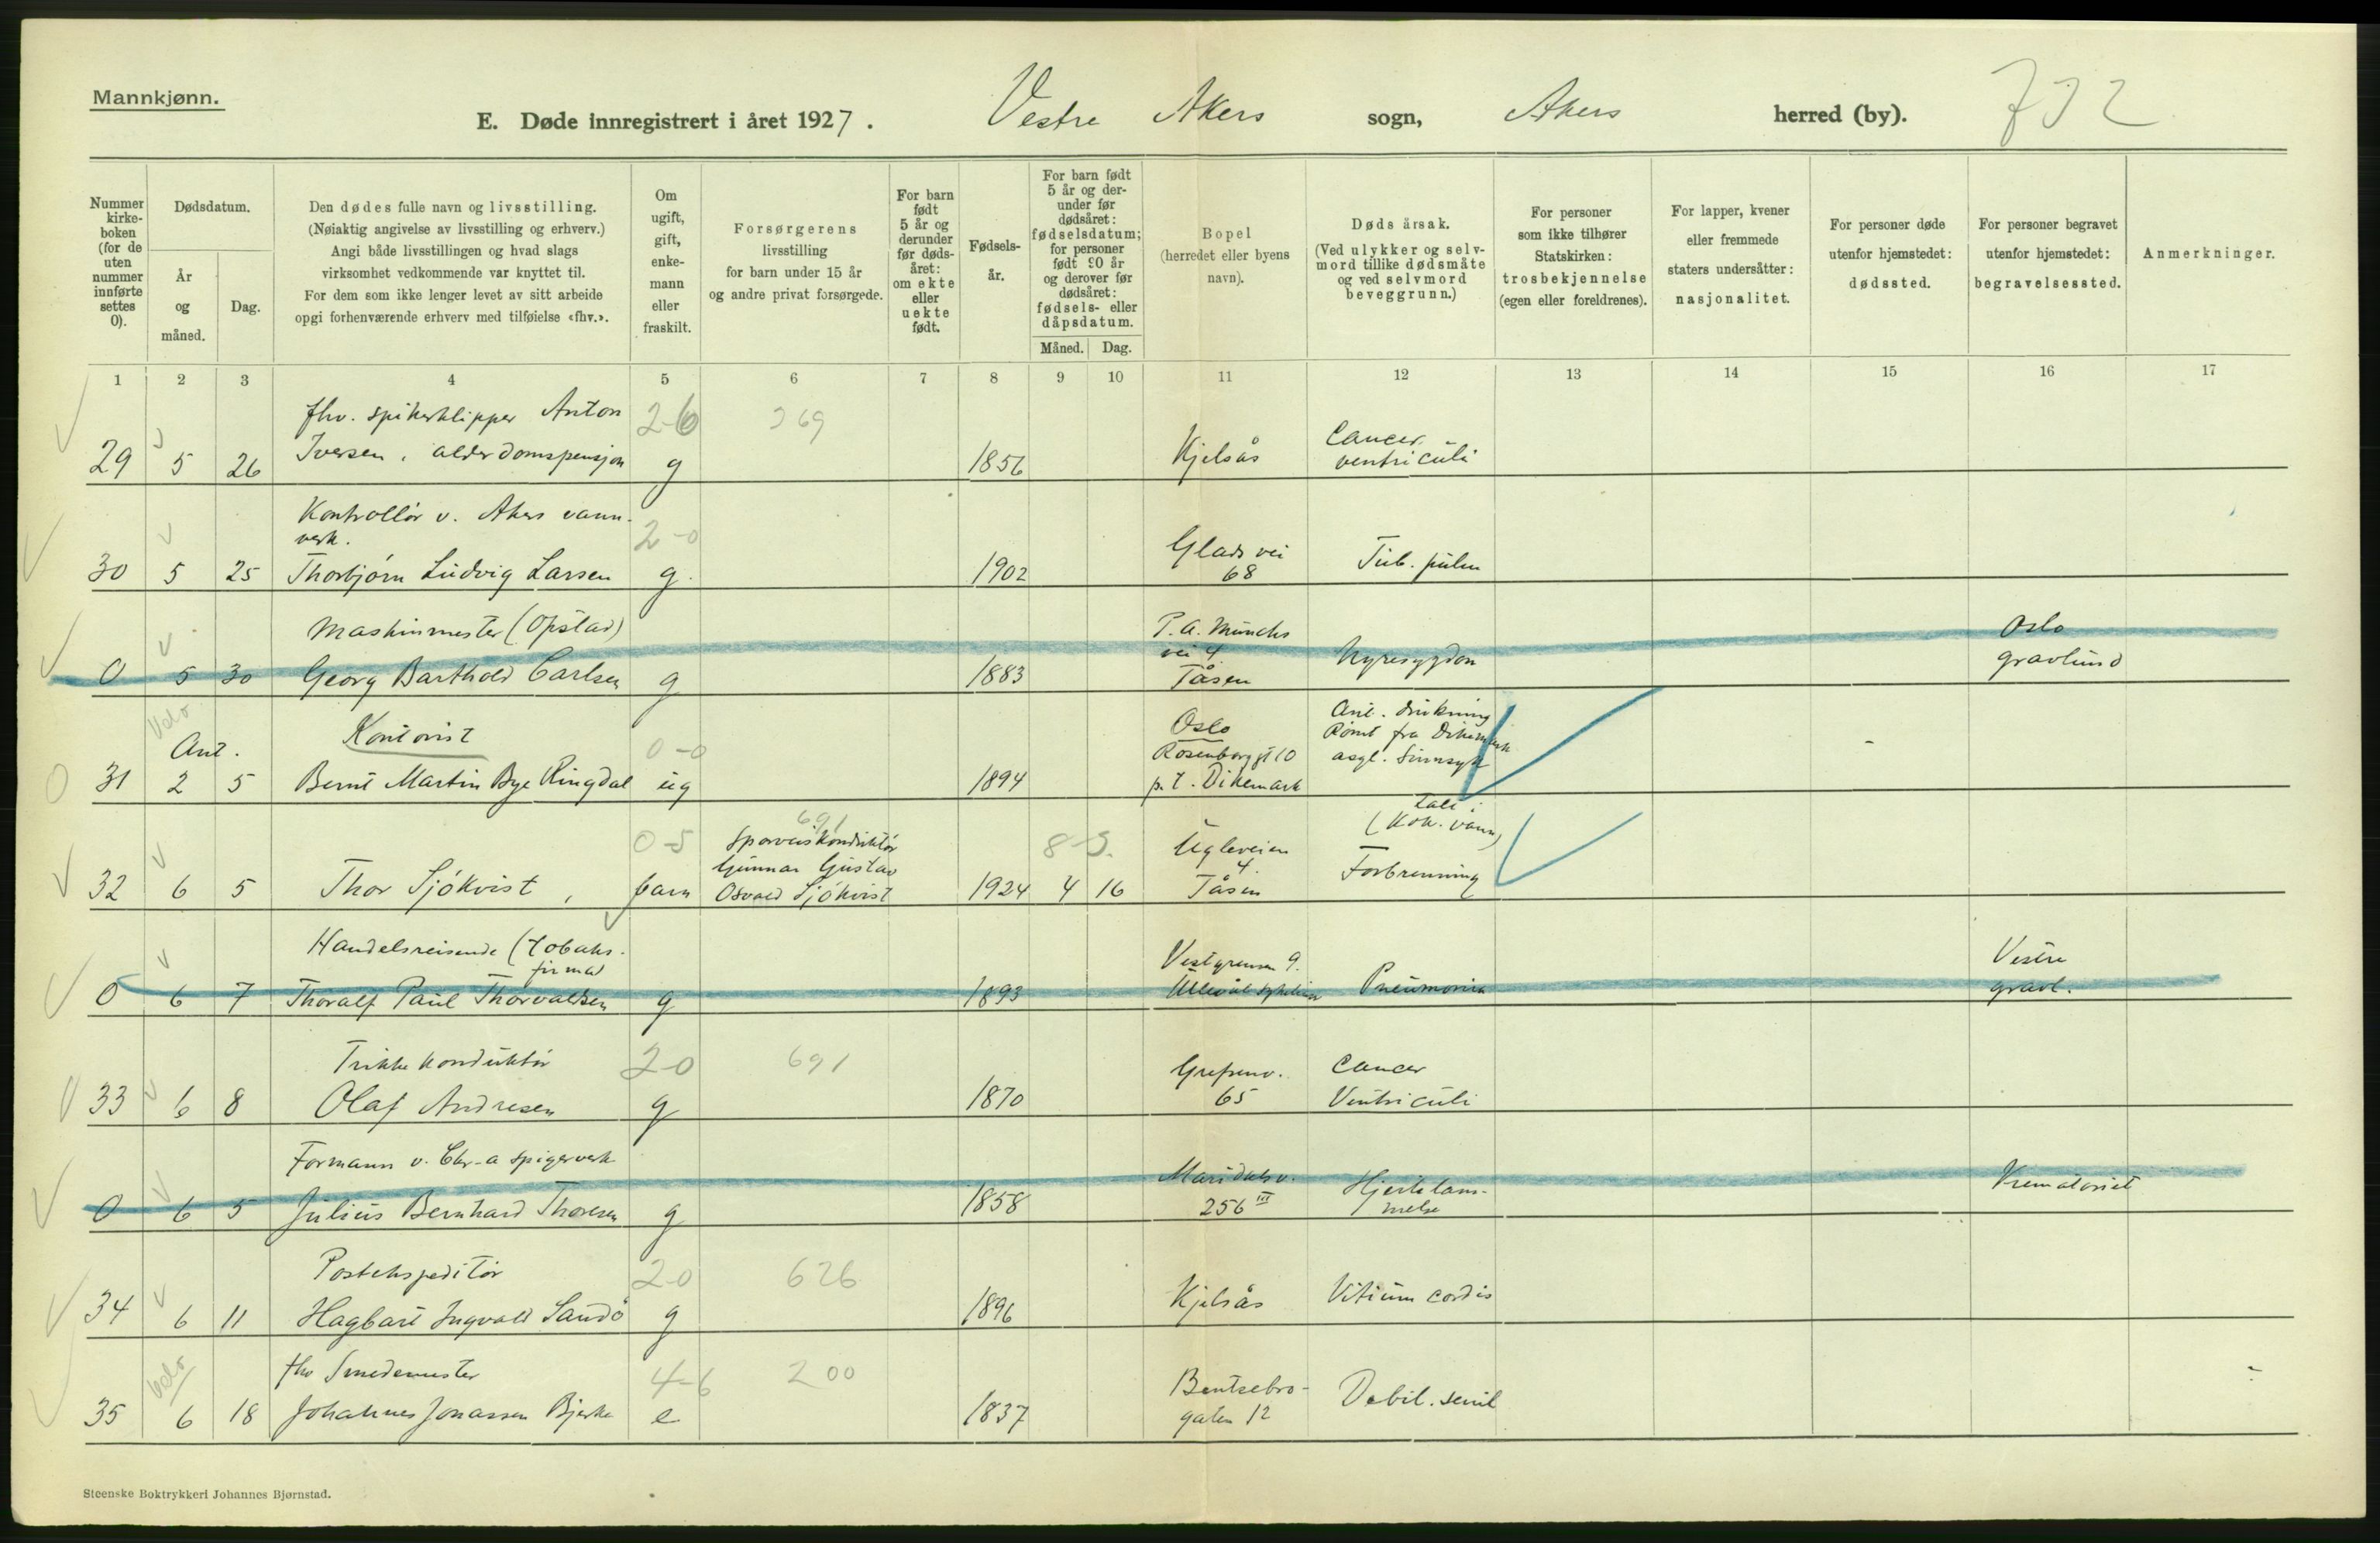 Mannkjønn.
E. Døde innregistrert i året 1927. Vestre Akers sogn, Akers herred (by). 732
Nummer kirke-boken (for de uten nummer innførte settes 0).
Dødsdatum.
År og måned.
Dag.
Den dødes fulle navn og livsstilling.
(Nøiaktig angivelse av livsstilling og erhverv.)
Angi både livsstillingen og hvad slags
virksomhet vedkommende var knyttet til.
For dem som ikke lenger levet av sitt arbeide
opgi forhenværende erhverv med tilføielse «fhv.».
Om ugift, gift, enke-mann eller fraskilt.
Forsørgerens
livsstilling
for barn under 15 år
og andre privat forsørgede.
For barn født 5 år og derunder før døds-året: om ekte eller uekte født.
Fødsels-år.
For barn født 5 år og der-under før dødsåret: fødselsdatum; for personer født 90 år og derover før dødsåret: fødsels- eller dåpsdatum.
Måned. Dag.
Bopel
(herredet eller byens
navn).
Dødsårsak.
(Ved ulykker og selv-
mord tillike dødsmåte
og ved selvmord
beveggrunn.)
For personer
som ikke tilhører
Statskirken:
trosbekjennelse
(egen eller foreldrenes).
For lapper, kvener
eller fremmede
staters undersåtter:
nasjonalitet.
For personer døde
utenfor hjemstedet:
dødssted.
For personer begravet
utenfor hjemstedet:
begravelsessted.
Anmerkninger.
1 2 3 4 5 6 7 8 9 10 11 12 13 14 15 16 17
fhv. spikerklipper Anton 2-6 269
29 5 26 Iversen, alderdomspensjon g 1856 Kjelsås Cancer ventriculi
Kontrollør v. Akers vann-
verk. 2-0
30 5 25 Thorbjørn Ludvig Larsen g. 1902 Glads vei 68 Tub. pulm
Maskinmester (Opstad) P. A. Munchs vei 4 Oslo
0 5 30 Georg Barthold Carlsen g 1883 Tåsen Nyresygdom gravlund
Ant. Kontorist 0-0 Oslo Ant. drukning
Rosenborggt 10 Rømt fra Dikemark
31 2 5 Bernt Martin Bye Ringdal ug 1894 p.t. Dikemark asyl. Sinnsyk
691 (Kok. vann)
0-5 Sporveiskonduktør 8 Ugleveien
Gunnar Gustav 4
32 6 5 Thor Sjökvist, barn Osvald Sjökvist 1924 4 16 Tåsen Forbrenning
Handelsreisende (tobaks- Vestgrensen 9. Vestre
firma)
0 6 7 Thoralf Paul Thorvaldsen g 1893 Ullevål sykehus Pneumonia gravl.
Trikkekonduktør 2-0 691 Grefsenv. Cancer
33 6 8 Olaf Andresen g 1870 65 Ventriculi
Formann v. Chr-a spigerverk Maridalsv. Hjertelam- Krematoriet
0 6 5 Julius Bernhard Thoresen g 1858 256 III melse
Postekspeditør 2-0 626
34 6 11 Hagbart Ingvald Sandö g 1896 Kjelsås Vitium cordis
fhv Smedemester 4-6 200 Bentsebro-
35 6 18 Johannes Jonassen Bjerke e 1837 gaten 12 Debil. senil
Steenske Boktrykkeri Johannes Bjørnstad.